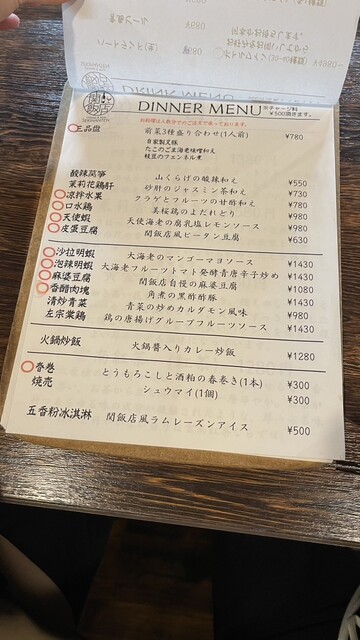 DINNER MENU ※チャージ料 ¥500頂きます。
三品盘 前菜3種盛り合わせ(1人前) ¥780
自家製叉豚
たこのごま海老味噌和え
枝豆のフェンネル煮
酸辣莴笋 山くらげの酸辣和え ¥550
茉莉花鶏肝 砂肝のジャスミン茶和え ¥730
凉拌水果 クラゲとフルーツの甘酢和え ¥780
口水鶏 美桜鶏のよだれどり ¥980
天使蝦 天使海老の腐乳塩レモンソース ¥980
皮蛋豆腐 間飯店風ピータン豆腐 ¥630
沙拉明蝦 大海老のマンゴーマヨソース ¥1430
泡辣明蝦 大海老フルーツトマト発酵青唐辛子炒め ¥1430
麻婆豆腐 間飯店自慢の麻婆豆腐 ¥1080
香醋肉塊 角煮の黒酢酢豚 ¥1430
清炒青菜 青菜の炒めカルダモン風味 ¥980
左宗棠鶏 鶏の唐揚げグレープフルーツソース ¥1430
火鍋炒飯 火鍋醬入りカレー炒飯 ¥1280
春巻 とうもろこしと酒粕の春巻き(1本) ¥300
焼売 シュウマイ(1個) ¥300
五香粉冰淇淋 間飯店風ラムレーズンアイス ¥500